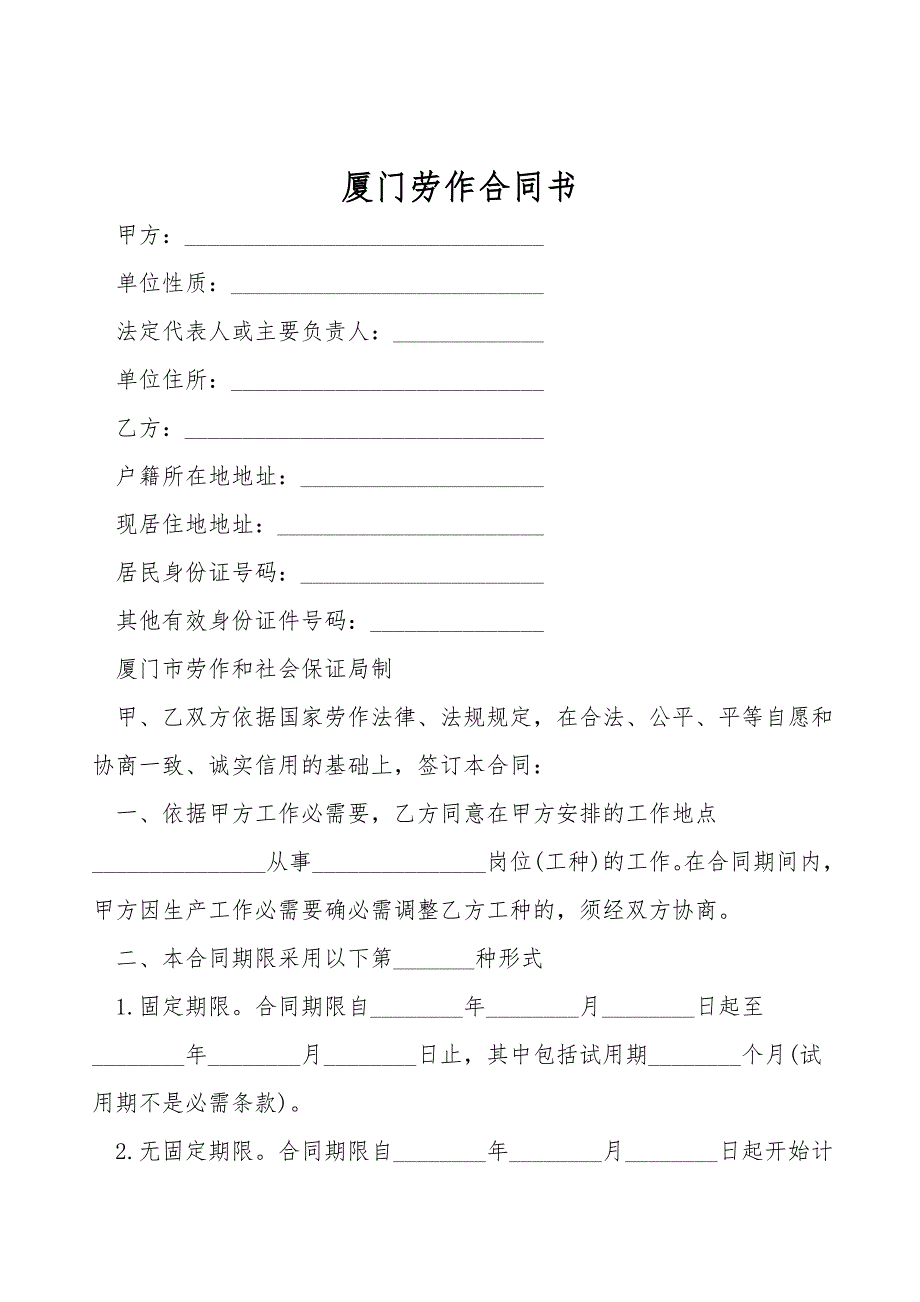 厦门劳作合同书
甲方：_______________________________
单位性质：___________________________
法定代表人或主要负责人：_____________
单位住所：___________________________
乙方：_______________________________
户籍所在地地址：_____________________
现居住地地址：_______________________
居民身份证号码：_____________________
其他有效身份证件号码：_______________
厦门市劳作和社会保证局制
甲、乙双方依据国家劳作法律、法规规定，在合法、公平、平等自愿和
协商一致、诚实信用的基础上，签订本合同：
一、依据甲方工作必需要，乙方同意在甲方安排的工作地点
_______________从事_______________岗位(工种)的工作。在合同期间内，
甲方因生产工作必需要确必需调整乙方工种的，须经双方协商。
二、本合同期限采用以下第_______种形式
1.固定期限。合同期限自________年________月________日起至
________年________月________日止，其中包括试用期________个月(试
用期不是必需条款)。
2.无固定期限。合同期限自________年________月________日起开始计